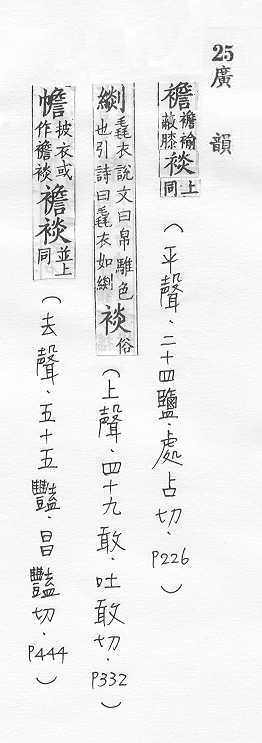 25廣韻
襜襜褕蔽膝裧上同(平聲.二十四鹽.處占切.P226)
緂毳衣說文曰帛騅色也引詩曰毳衣如緂裧俗(上聲.四十九敢.吐敢切.P332)
幨披衣或作襜裧襜裧並上同(去聲.五十五豔.昌豔切.P444)